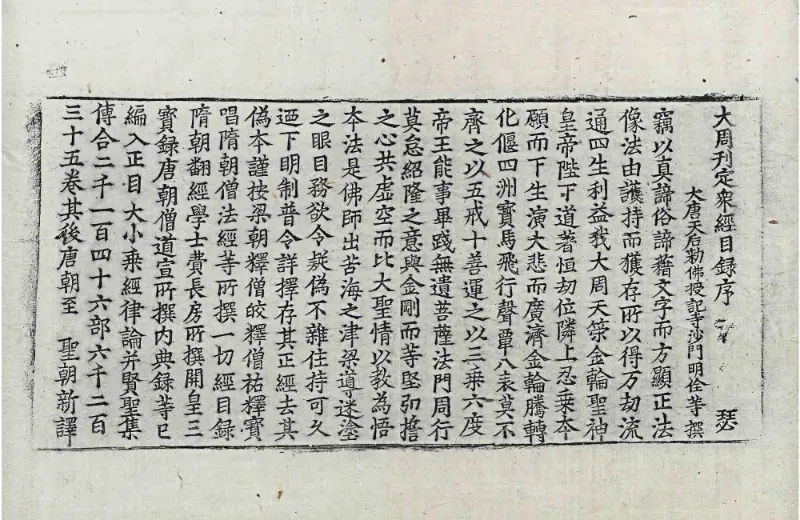 大周刊定衆經目録序 瑟
大唐天后勅佛授記寺沙門明佺等撰
竊以真諦俗諦藉文字而方顯正法
像法由護持而獲存所以得万劫流
通四生利益我大周天策金輪聖神
皇帝陛下道著恒劫位隣上忍乗本
願而下生演大悲而廣濟金輪騰轉
化偃四洲寶馬飛行聲覃八表莫不
齊之以五戒十善運之以三乗六度
帝王能事畢踐無遺菩薩法門周行
莫怠紹隆之意與金剛而等堅弘擔
之心共虚空而比大聖情以教為悟
本法是佛師出苦海之津梁導迷塗
之眼目務欲令疑偽不雜住持可久
迺下明制普令詳擇存其正經去其
偽本謹按梁朝釋僧皎釋僧祐釋寶
唱隋朝僧法經等所撰一切經目録
隋朝翻經學士費長房所撰開皇三
寶録唐朝僧道宣所撰内典録等已
編入正目大小乗經律論并賢聖集
傳合二千一百四十六部六千二百
三十五卷其後唐朝至 聖朝新譯